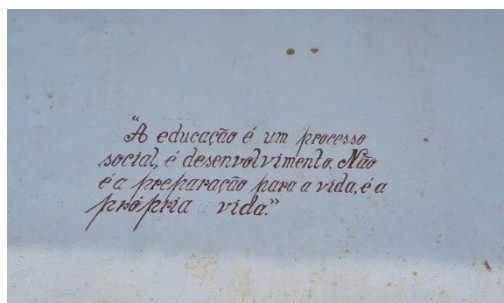 “A educação é um processo
social, é desenvolvimento. Não
é a preparação para a vida, é a
própria vida.”